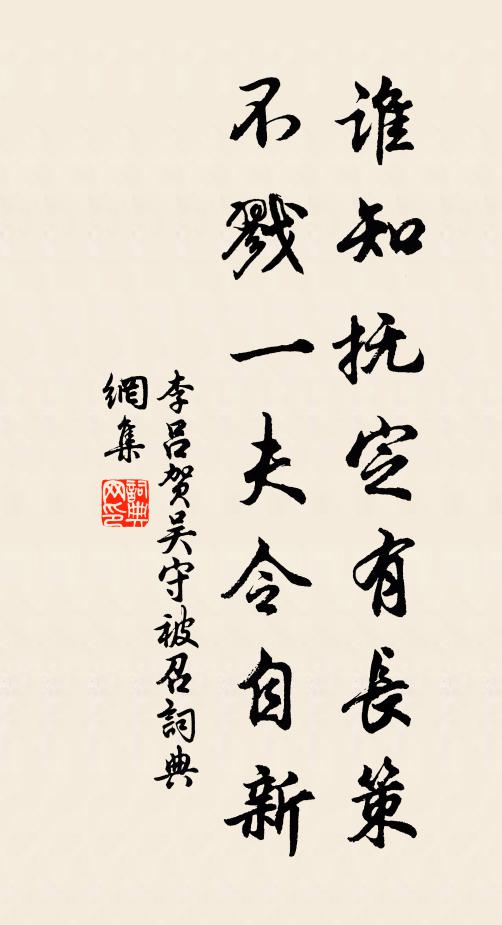 谁知抚定有長策
不戮一夫令自新
李吕贺吴守被召詞典
網集
詞典
网印